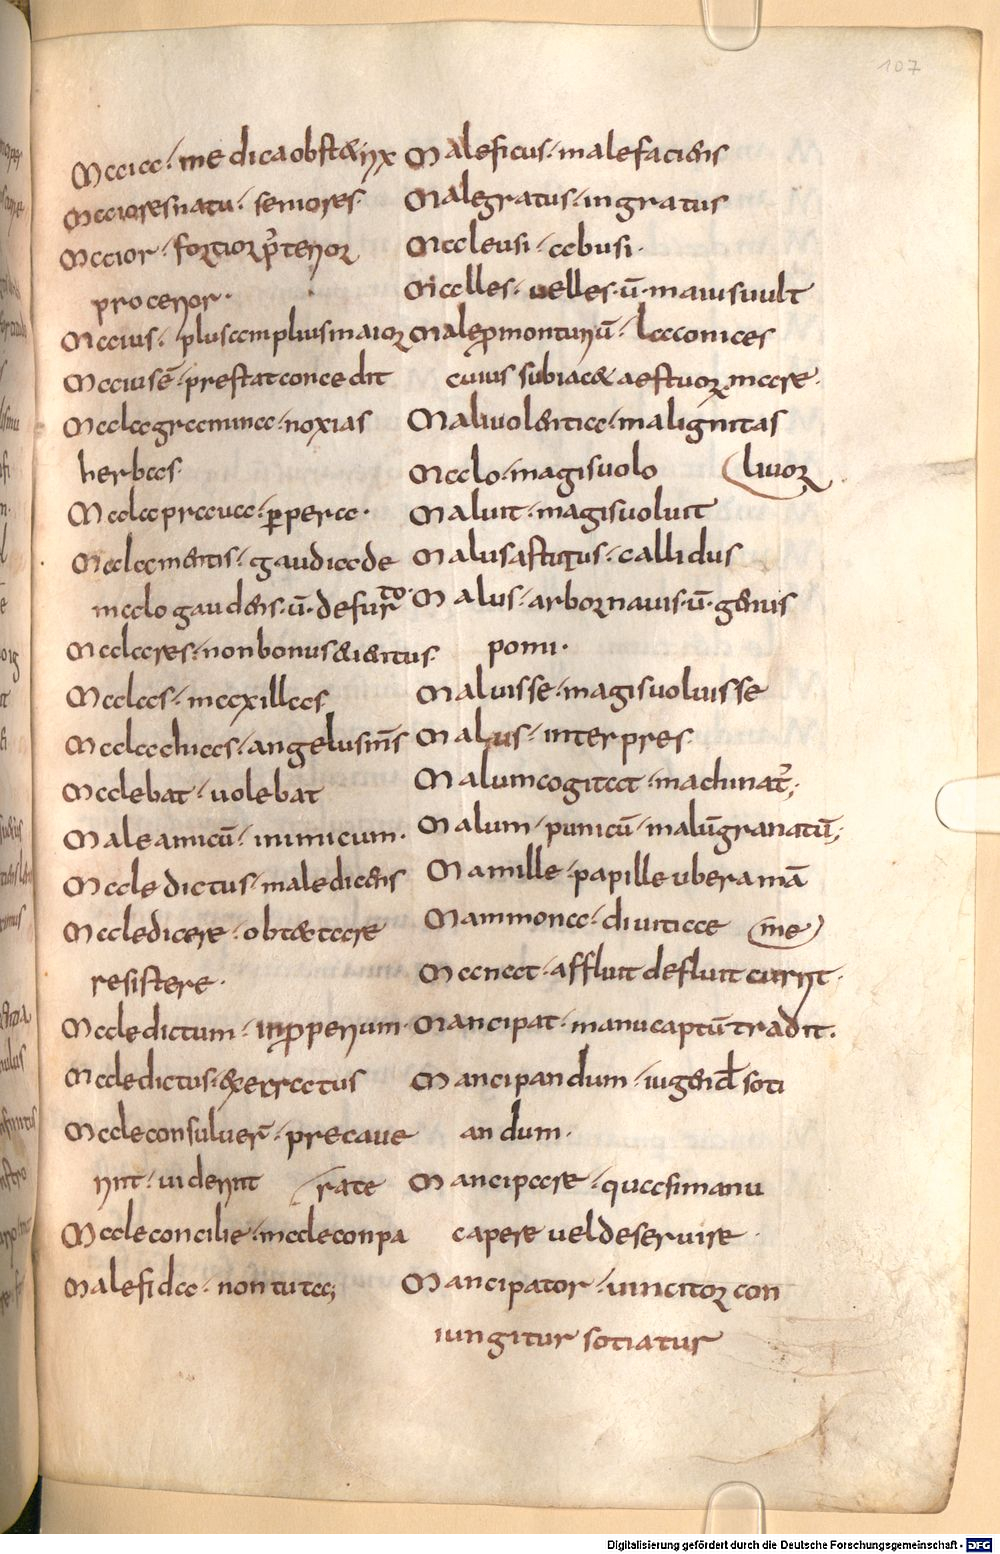 107
Maia · medica obstetrix
Maiores natu · seniores ·
Maior · fortior p̄stenor
procenor ·
Maius · plus amplius maior
Maius ē · prestat concedit
Mala gramina · noxias
herbas ·
Mala praua · ꝑpera ·
Mala mentis · gaudia de
malo gaudens · ū · de furto ·
Malares · non bonus & ientus ·
Malas · maxillas
Malachias · angelus m̄s
Malebat · uolebat
Male amicū · inimicum ·
Male dictus · male dicens
Maledicere · obtectare
resistere ·
Male dictum · inproperium ·
Male dictus · exerratus
Male consuluer̄ · precaue
runt · uiderunt
Male concilie · male conpa
rate
Malefida · non tuta;
Maleficus · male faciens
Male gratus · ingratus
Maleusi · abusi ·
Malles · uelles · ū · maius uult
Male p̄monturiū · laconices
cuius subiacet aestuor mare ·
Maliuolentia · malignitas
liuor
Malo · magis uolo
Maluit · magis uoluit
Malus astutus · callidus
Malus · arbor nauis · ū · genus
pomi ·
Maluisse · magis uoluisse
Malus · interpres ·
Malum cogitat · machinat̄;
Malum · punicū · malūgranatū;
Mamille · papille ubera mā
me
Mammona · diuitiae
Manat · affluit defluit currit ·
Mancipat · manu captū tradit ·
Mancipandum · iugend̄ soti
andum ·
Mancipare · quasi manu
capere uel deseruire ·
Mancipator · uincitor con
iungitur sotiatur
Digitalisierung gefördert durch die Deutsche Forschungsgemeinschaft - DFG